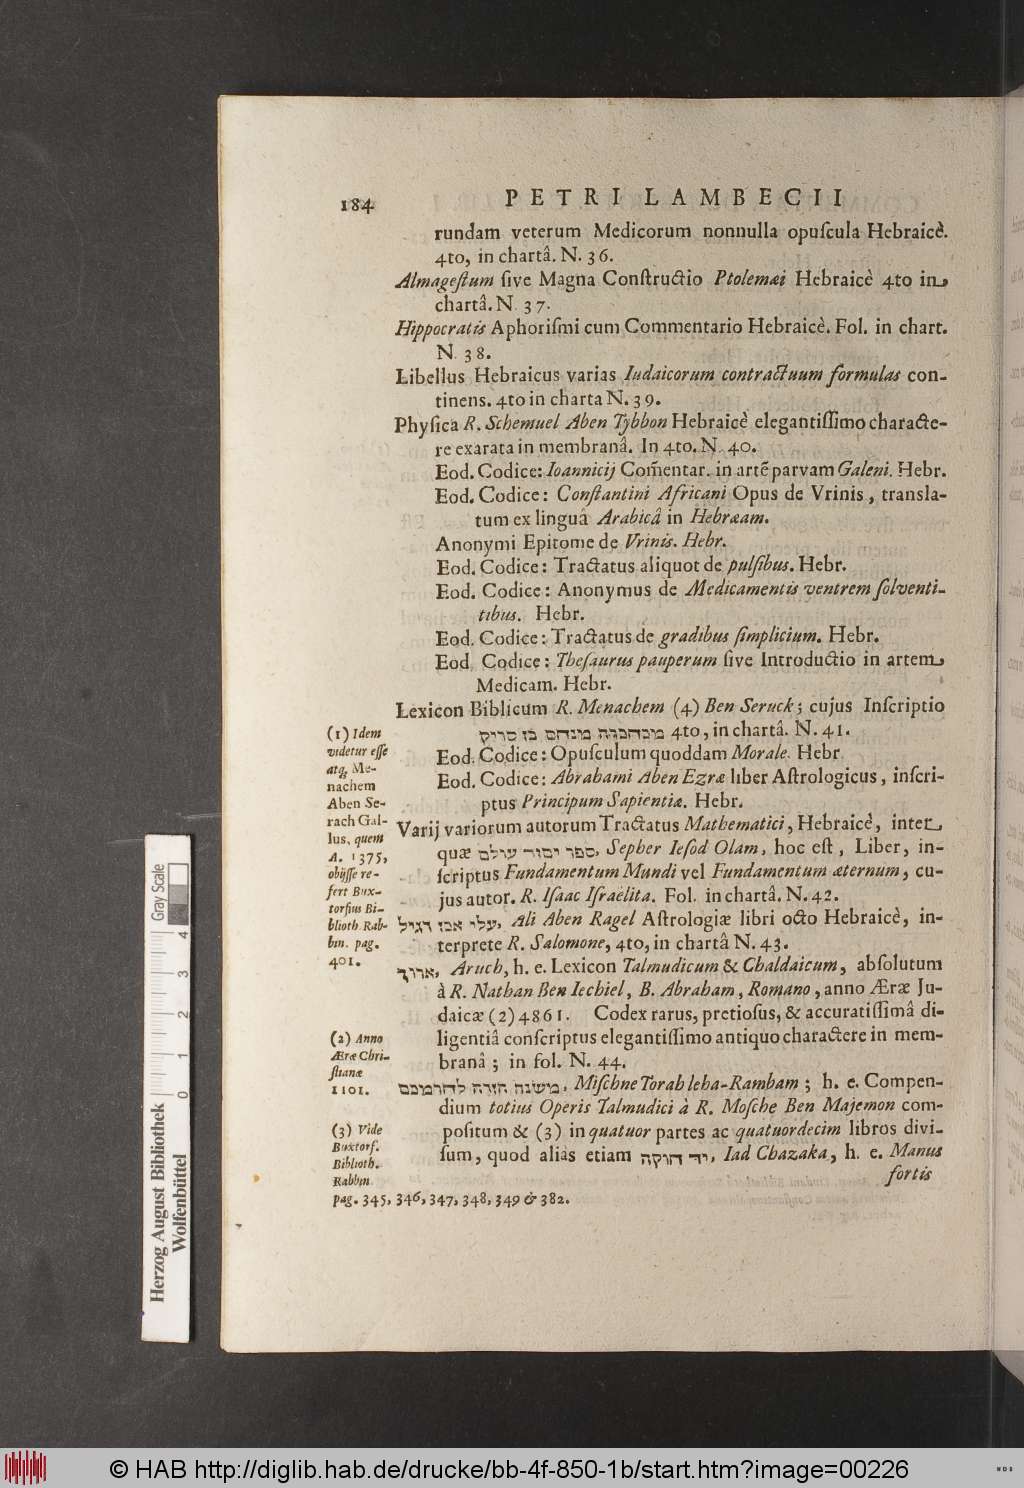 184 PETRI LAMBECII
rundam veterum Medicorum nonnulla opuſcula Hebraicè.
4to, in chartâ. N. 36.
Almageſtum ſive Magna Conſtructio Ptolemæi Hebraicè 4to in
chartâ. N. 37.
Hippocratis Aphoriſmi cum Commentario Hebraicè. Fol. in chart.
N. 38.
Libellus Hebraicus varias Iudaicorum contractuum formulas con-
tinens. 4to in charta N. 39.
Phyſica R. Schemuel Aben Tybbon Hebraicè elegantiſſimo characte-
re exarata in membranâ. In 4to. N. 40.
Eod. Codice: Ioannicij Com̄entar. in artē parvam Galeni. Hebr.
Eod. Codice: Conſtantini Africani Opus de Vrinis, transla-
tum ex linguâ Arabicâ in Hebræam.
Anonymi Epitome de Vrinis. Hebr.
Eod. Codice: Tractatus aliquot de pulſibus. Hebr.
Eod. Codice: Anonymus de Medicamentis ventrem ſolventi-
tibus. Hebr.
Eod. Codice: Tractatus de gradibus ſimplicium. Hebr.
Eod. Codice: Theſaurus pauperum ſive Introductio in artem
Medicam. Hebr.
Lexicon Biblicum R. Menachem (4) Ben Seruck; cujus Inſcriptio
מנחם בן סרוק 4to, in chartâ. N. 41.
Eod. Codice: Opuſculum quoddam Morale. Hebr.
Eod. Codice: Abrahami Aben Ezræ liber Aſtrologicus, inſcri-
ptus Principum Sapientiæ. Hebr.
Varij variorum autorum Tractatus Mathematici, Hebraicè, inter
quæ ספר יסוד עולם, Sepher Ieſod Olam, hoc eſt, Liber, in-
ſcriptus Fundamentum Mundi vel Fundamentum æternum, cu-
jus autor. R. Iſaac Iſraëlita. Fol. in chartâ. N. 42.
עלי אבן רגיל, Ali Aben Ragel Aſtrologiæ libri octo Hebraicè, in-
terprete R. Salomone, 4to, in chartâ N. 43.
ארוך, Aruch, h. e. Lexicon Talmudicum & Chaldaicum, abſolutum
à R. Nathan Ben Iechiel, B. Abraham, Romano, anno Æræ Ju-
daicæ (2) 4861. Codex rarus, pretioſus, & accuratiſſimâ di-
ligentiâ conſcriptus elegantiſſimo antiquo charactere in mem-
branâ; in fol. N. 44.
משנה תורה להרמבם, Miſchne Torah leha-Rambam; h. e. Compen-
dium totius Operis Talmudici à R. Moſche Ben Majemon com-
poſitum & (3) in quatuor partes ac quatuordecim libros divi-
ſum, quod alias etiam יד חזקה, Iad Chazaka, h. e. Manus
fortis
(1) Idem
videtur eſſe
atq; Me-
nachem
Aben Se-
rach Gal-
lus, quem
A. 1375,
obijſſe re-
fert Bux-
torfius Bi-
blioth. Rab-
bin. pag.
401.
(2) Anno
Æræ Chri-
ſtianæ
1101.
(3) Vide
Buxtorf.
Biblioth.
Rabbin.
pag. 345, 346, 347, 348, 349 & 382.
Herzog August Bibliothek
Wolfenbüttel
Gray Scale
0 1 2 3 4
© HAB http://diglib.hab.de/drucke/bb-4f-850-1b/start.htm?image=00226